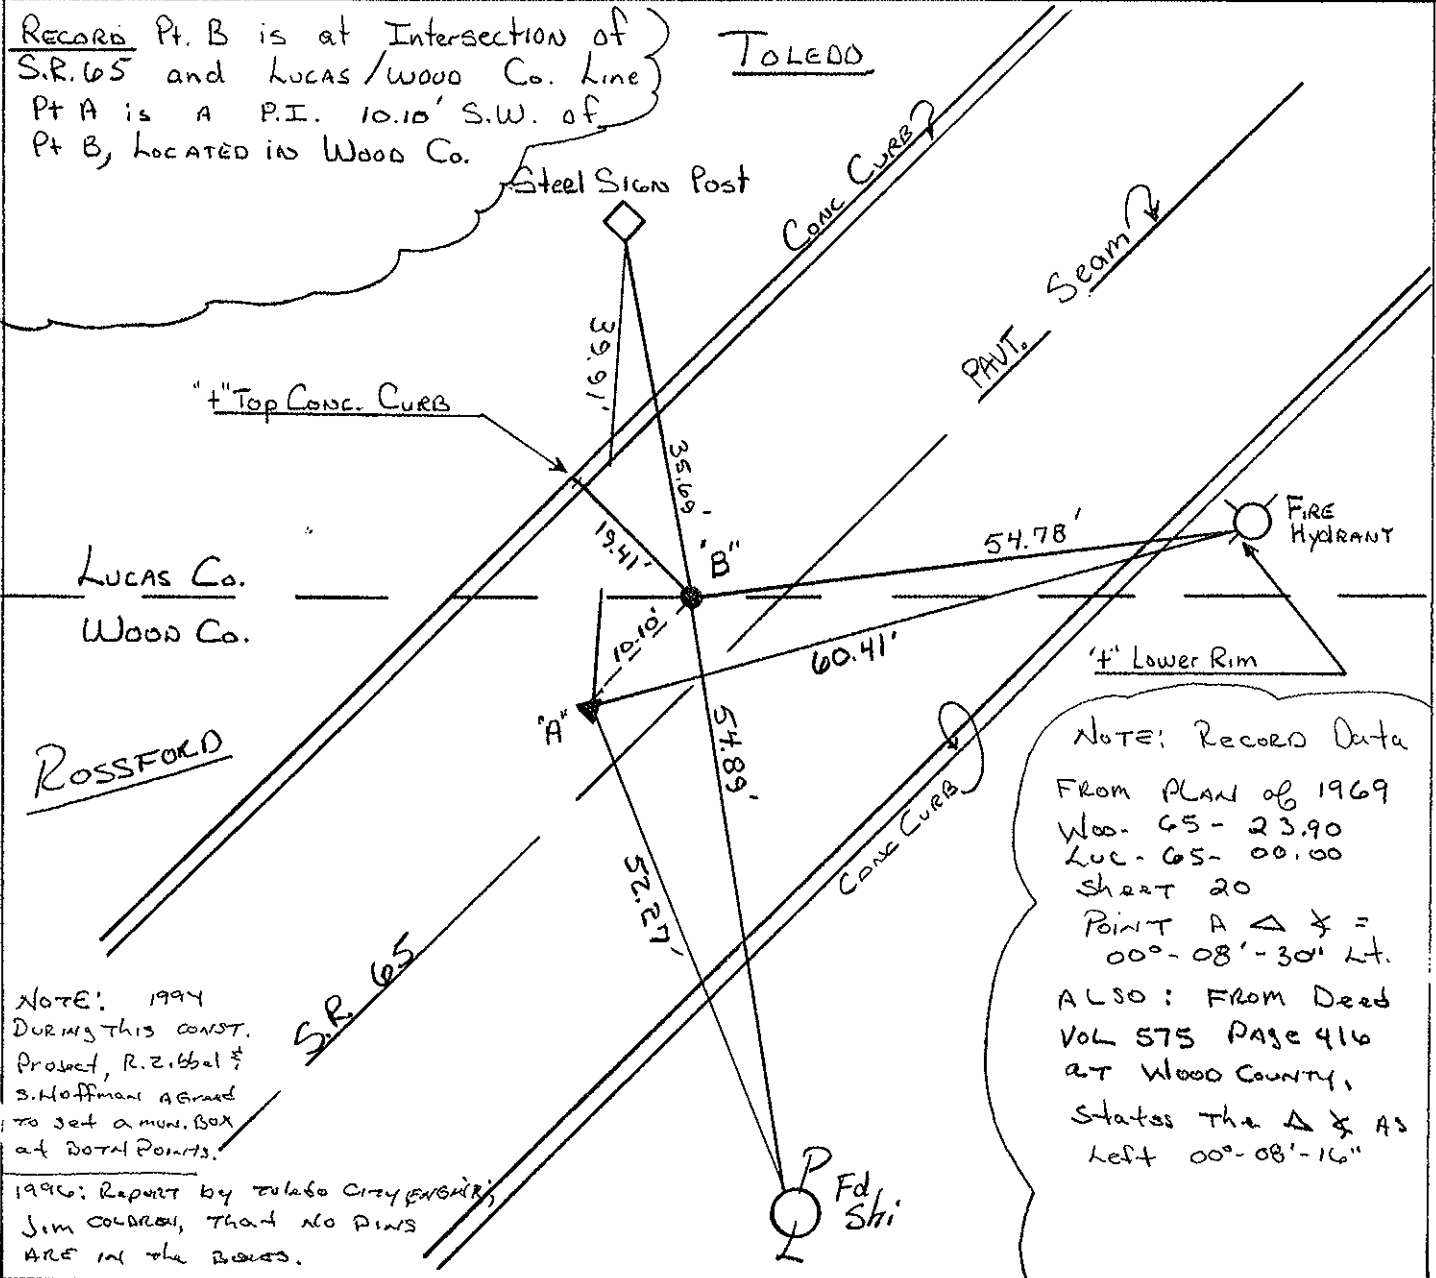 RECORD Pt. B is at Intersection of
S.R. 65 and LUCAS / WOOD Co. Line
Pt A is A P.I. 10.10' S.W. of
Pt B, LOCATED IN WOOD Co.
TOLEDO
Steel SIGN Post
CONC CURB
Seam
PAVT.
39.91'
"+" Top CONC. CURB
35.69'
19.41'
"B"
54.78'
FIRE
HYDRANT
LUCAS Co.
WOOD Co.
10.10'
60.41'
"+" Lower Rim
"A"
54.89'
ROSSFORD
52.27'
CONC CURB
S.R. 65
NOTE: RECORD Data
FROM PLAN of 1969
Woo- 65- 23.90
LUC- 65- 00.00
Sheet 20
POINT A Δ ∡ =
00°-08'-30" Lt.
ALSO: FROM Deed
VOL 575 PAge 416
aT WOOD COUNTY,
States The Δ ∡ As
Left 00°-08'-16"
NOTE: 1994
DURING This CONST.
Project, R.Zibbel &
S.Hoffman AGreed
to set a mon. Box
at BOTH Points.
1996: Report by Toledo City
Jim That No PINS
ARE IN the Boxes.
P
L
Fd
Shi